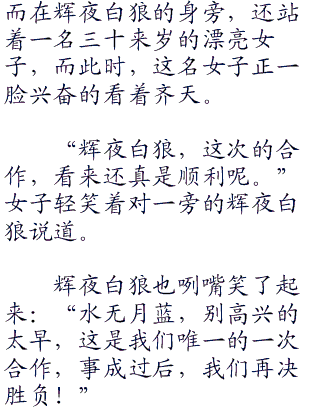 而在辉夜白狼的身旁，还站
着一名三十来岁的漂亮女
子，而此时，这名女子正一
脸兴奋的看着齐天。
“辉夜白狼，这次的合
作，看来还真是顺利呢。”
女子轻笑着对一旁的辉夜白
狼说道。
辉夜白狼也咧嘴笑了起
来：“水无月蓝，别高兴的
太早，这是我们唯一的一次
合作，事成过后，我们再决
胜负！”